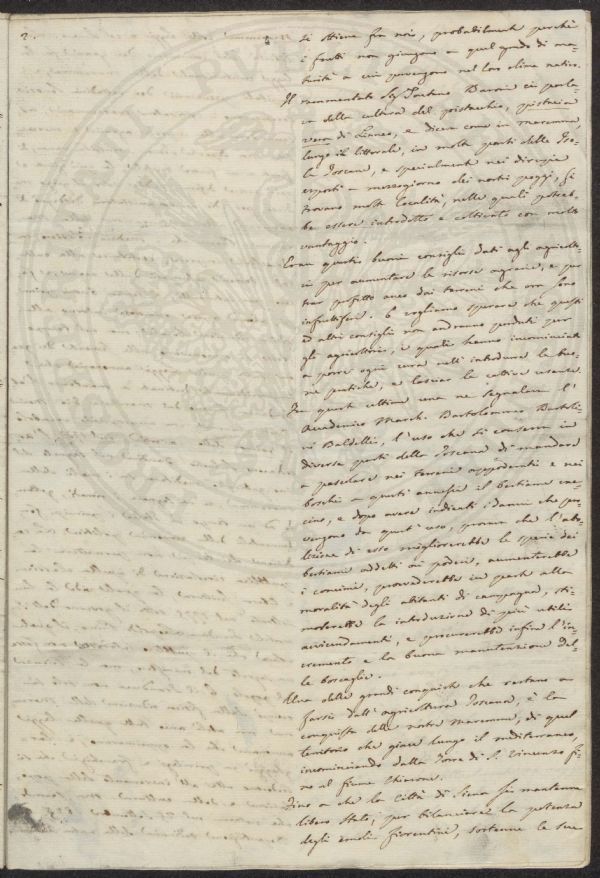 2.
si ottiene fra noi, probabilmente perchè
i frutti non giungono a quel grado di ma-
turità a cui pervengono nel loro clima nativo.
Il rammentato Sig.
della cultura del pistacchio, pistacia
vera di Linneo, e dicea come in maremma,
lungo il littorale, in molte parti della To-
la Toscana, e specialmente nei
esposti a mezzogiorno dei nostri poggi, si
trovano molte località, nelle quali potreb-
be essere introdotto e coltivato con molto
vantaggio.
Eran questi buoni consigli dati agli agricolto-
ri per aumentare le risorse agrarie, e per
trar profitto anco dai terreni che ora sono
infruttiferi. E vogliamo sperare che questi
ed altri consigli non andranno perduti per
gli agricoltori, i quali hanno incominciato
a porre ogni cura nell' introdurre le buo-
ne pratiche, e lasciar le cattive usanze.
Di quest' ultime una ne segnalava l'
Accademico March. Bartolommeo Bartoli-
ni Baldelli, l'uso che si conserva in
diverse parti della Toscana di mandare
a pascolare nei terreni appoderati e nei
boschi a questi annessi il bestiame vac-
cino, e dopo avere indicati i danni che pro-
vengono da quest' uso, provava che l'abo-
lizione di esso migliorerebbe le specie dei
bestiami addetti ai poderi, aumenterebbe
i concimi, provvederebbe in parte alla
moralità degli abitanti di campagna, sti-
molerebbe la introduzione di più utili
avvicendamenti, e procurerebbe infine l'in-
cremento e la buona manutenzione del-
le boscaglie.
Una delle grandi conquiste che restano a
farsi dall' agricoltura Toscana, è la
conquista delle nostre Maremme, di quel
territorio che giace lungo il mediterraneo,
incominciando dalla Torre di S. Vincenzo fi-
no al fiume Chiarone.
Fino a che la Città di Siena si mantenne
libero Stato, per bilanciare la potenza
degli emoli fiorentini, sostenne le sue